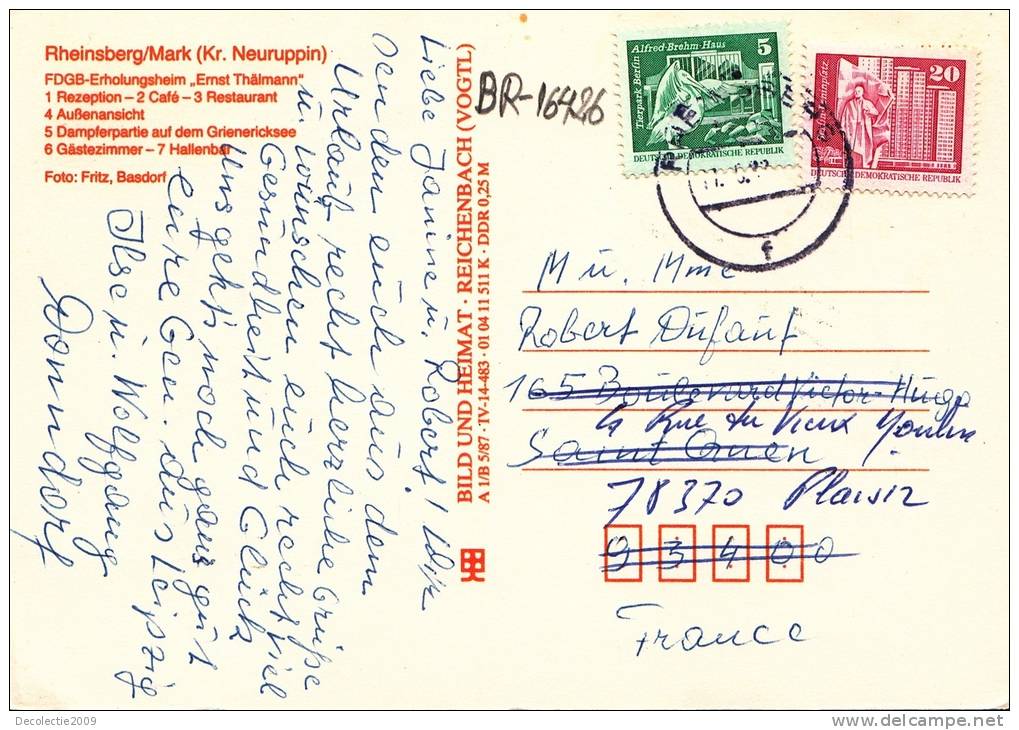 Rheinsberg/Mark (Kr. Neuruppin)
FDGB-Erholungsheim „Ernst Thälmann"
1 Rezeption – 2 Café – 3 Restaurant
4 Außenansicht
5 Dampferpartie auf dem Grienericksee
6 Gästezimmer – 7 Hallenbar
Foto: Fritz, Basdorf
Liebe Janine u. Robert! Wir
senden euch aus dem
Urlaub recht herzliche Grüße
u. wünschen euch recht viel
Gesundheit und Glück
Uns geht's noch ganz gut
eure aus Leipzig
Ilse u. Wolfgang
Donndorf
BILD UND HEIMAT · REICHENBACH (VOGTL)
A 1/B 5/87 · TV-14-483 · 01 04 11 511 K · DDR 0,25 M
BR-16426
Alfred-Brehm-Haus
5
Tierpark Berlin
DEUTSCHE DEMOKRATISCHE REPUBLIK
20
Leninplatz
DEUTSCHE DEMOKRATISCHE REPUBLIK
f
M u. Mme
Robert Dufaut
165 Boulevard Victor-Hugo
Rue du Vieux Moulin
Saint Ouen
78370 Plaisir
93400
France
Decolectie2009